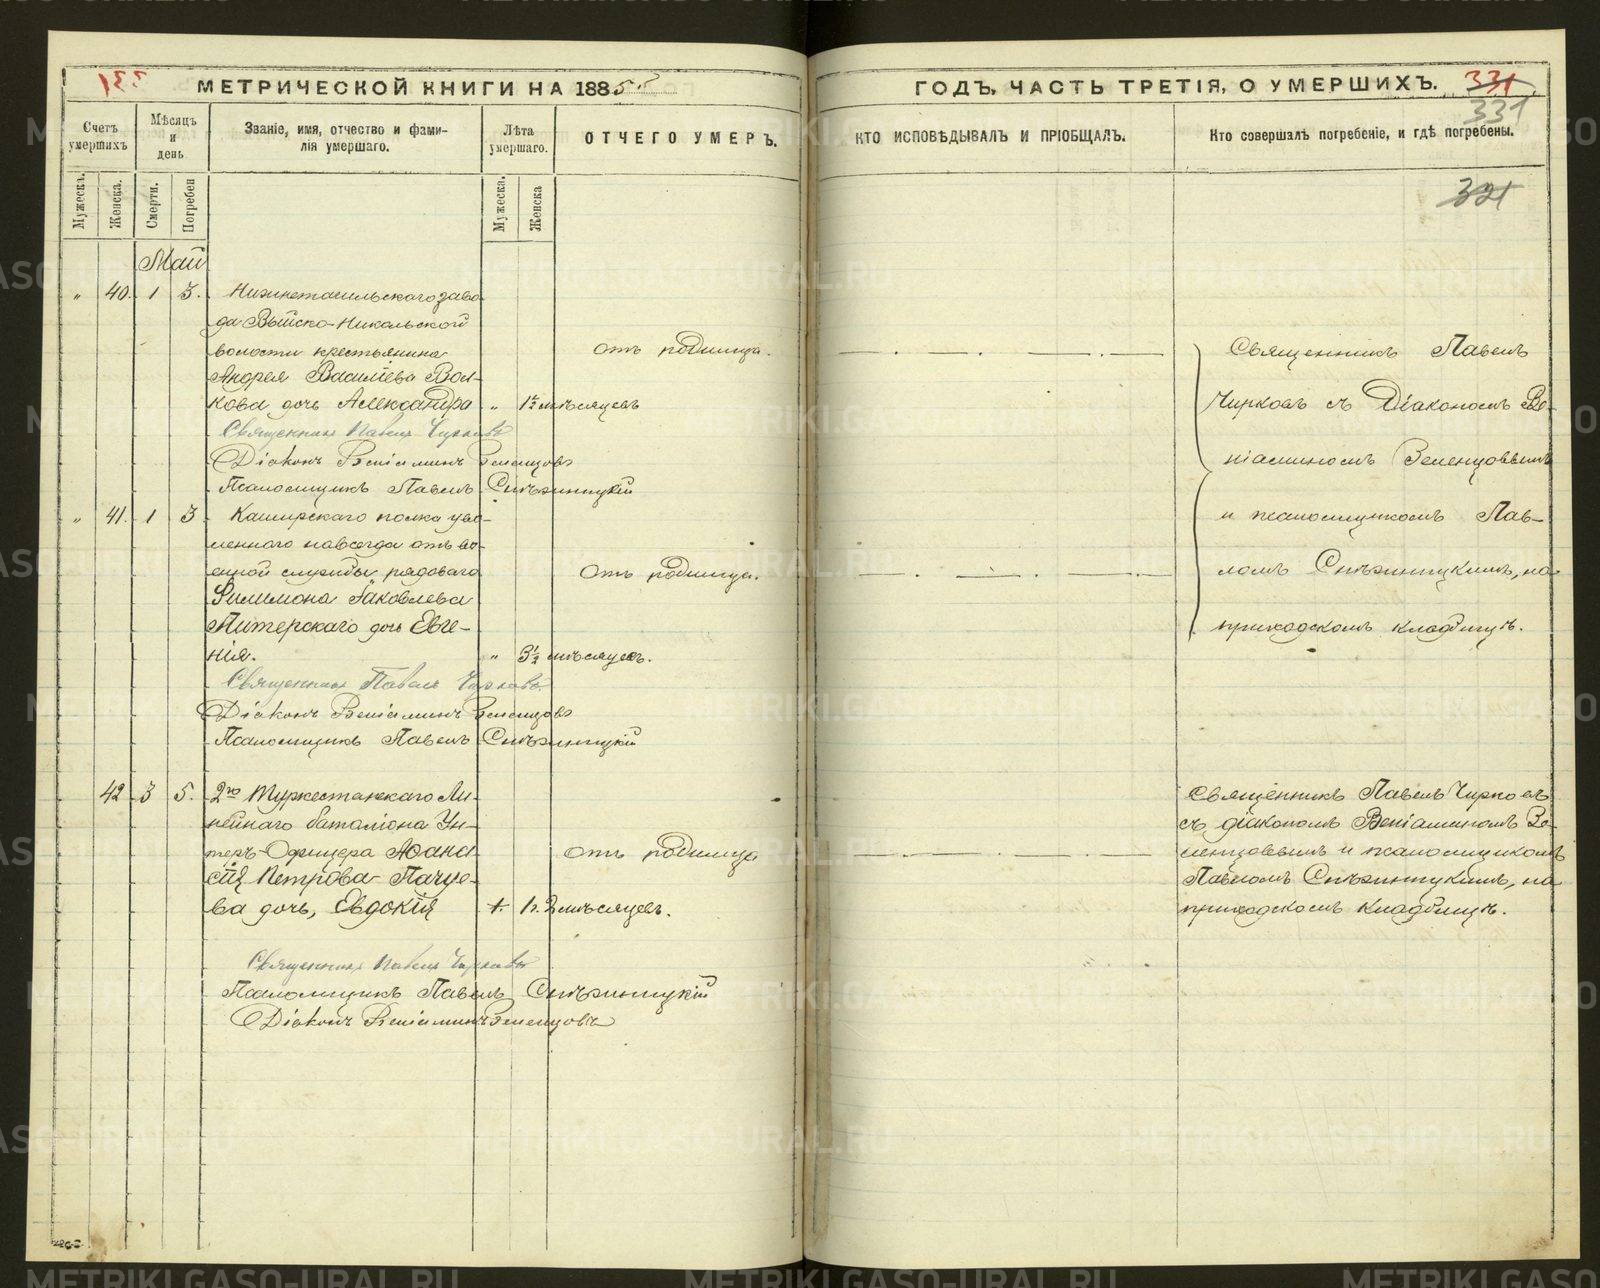 МЕТРИЧЕСКОЙ КНИГИ НА 1885
Счетъ умершихъ
Мѣсяцъ и день
Званіе, имя, отчество и фами-
лія умершаго.
Лѣта умершаго.
ОТЧЕГО УМЕРЪ.
Мужеск.
Женска.
Смерти.
Погребен
Мужеска.
Женска
Май
„ 40. 1 3. Нижнетагильскаго заво
да Выйско-Никольской
волости крестьянина
отъ родимца.
Андрея Василіева Вол-
кова дочь Александра „ 1½ мѣсяцевъ
Священникъ Павелъ Чирковъ
Діаконъ Веніаминъ Зеленцовъ
Псаломщикъ Павелъ
„ 41. 1 3 Каширскаго полка уво-
леннаго навсегда отъ во-
енной службы рядоваго
отъ родимца.
Филимона Яковлева
Питерскаго дочь Евге-
нія. „ 3½ мѣсяцевъ.
Священникъ Павелъ Чирковъ
Діаконъ Веніаминъ Зеленцовъ
Псаломщикъ Павелъ
42 3 5. 2го Туркестанскаго Ли-
нейнаго баталіона Ун-
теръ-Офицера Аѳана-
отъ родимца
сія Петрова
ва дочь, Евдокія мѣсяцевъ.
Священникъ Павелъ Чирковъ
Псаломщикъ Павелъ
Діаконъ Веніаминъ Зеленцовъ
ГОДЪ, ЧАСТЬ ТРЕТІЯ, О УМЕРШИХЪ.
331
331
КТО ИСПОВѢДЫВАЛЪ И ПРІОБЩАЛЪ.
Кто совершалъ погребеніе, и гдѣ погребены.
321
Священникъ Павелъ
Чирковъ съ Діакономъ Ве-
ніаминомъ Зеленцовымъ
и псаломщикомъ Пав-
ломъ на
приходскомъ кладбищѣ.
Священникъ Павелъ Чирковъ
съ діакономъ Веніаминомъ Зе-
ленцовымъ и псаломщикомъ
Павломъ на
приходскомъ кладбищѣ.
METRIKI.GASO-URAL.RU